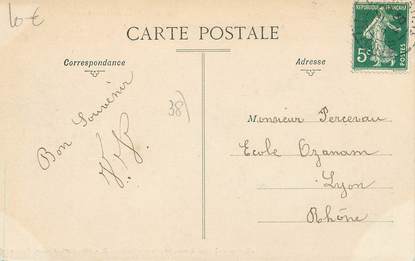 10 €
CARTE POSTALE
RÉPUBLIQUE FRANÇAISE
5c
POSTES
Correspondance
Adresse
Bon Souvenir
38)
Monsieur Percevau
Ecole Ozanam
Lyon
Rhône